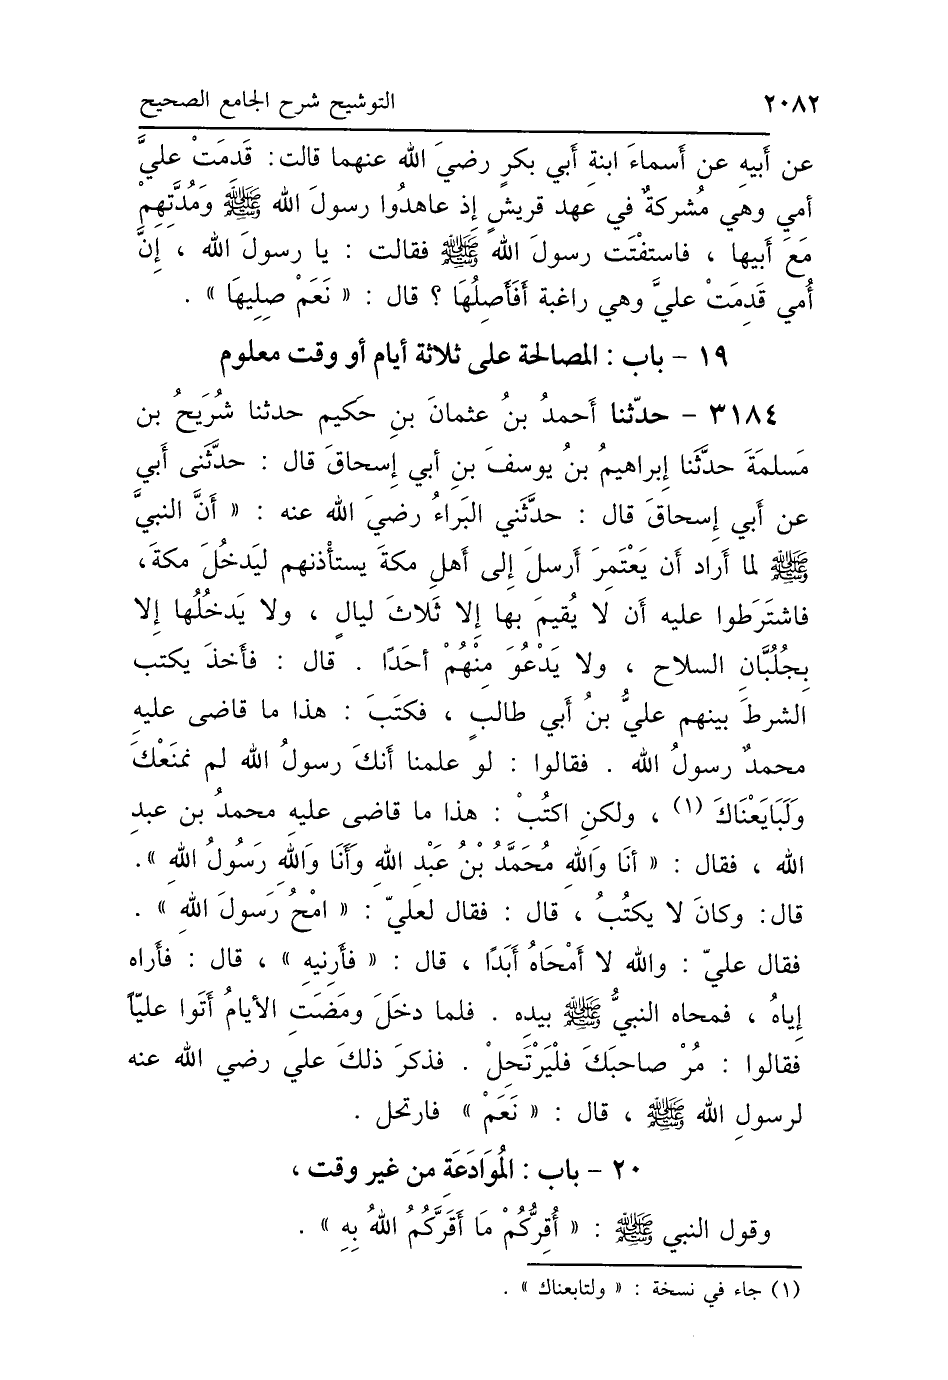 ٢٠٨٢ التوشيح شرح الجامع الصحيح
عن أبيهِ عن أسماءَ ابنةِ أبي بكرٍ رضيَ الله عنهما قالت: قَدِمَتْ عليَّ
أمي وهي مُشركةٌ في عهد قريشٍ إذ عاهدُوا رسولَ الله ﷺ وَمُدَّتِهِمْ
مَعَ أبيها ، فاستفْتَت رسولَ الله ﷺ فقالت : يا رسولَ الله ، إنَّ
أُمي قَدِمَتْ عليَّ وهي راغبة أَفَأَصِلُهَا ؟ قال : « نَعَمْ صِلِيهَا » .
١٩ - باب : المصالحة على ثلاثة أيام أو وقت معلوم
٣١٨٤ - حدّثنا أحمدُ بنُ عثمانَ بنِ حَكيم حدثنا شُرَيحُ بن
مَسلمَةَ حدَّثَنا إبراهيمُ بنُ يوسفَ بنِ أبي إسحاقَ قال : حدَّثَنى أبي
عن أبي إسحاقَ قال : حدَّثَني البَراءُ رضيَ الله عنه : « أنَّ النبيَّ
ﷺ لما أراد أن يَعْتَمِرَ أرسلَ إلى أهلِ مكةَ يستأْذنهم ليَدخُلَ مكةَ،
فاشتَرَطوا عليه أن لا يُقيمَ بها إلا ثَلاثَ ليالٍ ، ولا يَدخُلُها إلا
بِجُلُبَّانِ السلاح ، ولا يَدْعُوَ مِنْهُمْ أحَدًا . قال : فأخذَ يكتب
الشرطَ بينهم عليُّ بنُ أبي طالبٍ ، فكتَبَ : هذا ما قاضى عليهِ
محمدٌ رسولُ الله . فقالوا : لو علمنا أنكَ رسولُ الله لم نمنَعْكَ
وَلَبَايَعْنَاكَ (١) ، ولكنِ اكتُبْ : هذا ما قاضى عليهِ محمدُ بن عبدِ
الله ، فقال : « أنَا وَاللهِ مُحَمَّدُ بْنُ عَبْدِ اللهِ وَأَنَا وَاللهِ رَسُولُ اللهِ ».
قال: وكانَ لا يكتُبُ ، قال : فقال لعليّ : « امْحُ رَسولَ اللهِ » .
فقال عليّ : والله لا أمْحَاهُ أبَدًا ، قال : « فأَرِنيهِ » ، قال : فأَراه
إياهُ ، فمحاه النبيُّ ﷺ بيدِه . فلما دخَلَ ومَضَتِ الأيامُ أتَوا عليّاً
فقالوا : مُرْ صاحبَكَ فلْيَرْتَحِلْ . فذكرَ ذلكَ علي رضي الله عنه
لرسولِ الله ﷺ ، قال : « نَعَمْ » فارتحل .
٢٠ - باب : المُوَادَعَةِ من غير وقت ،
وقول النبي ﷺ : « أُقِرُّكُمْ مَا أَقَرَّكُمُ اللهُ بِهِ » .
(١) جاء في نسخة : « ولتابعناك » .